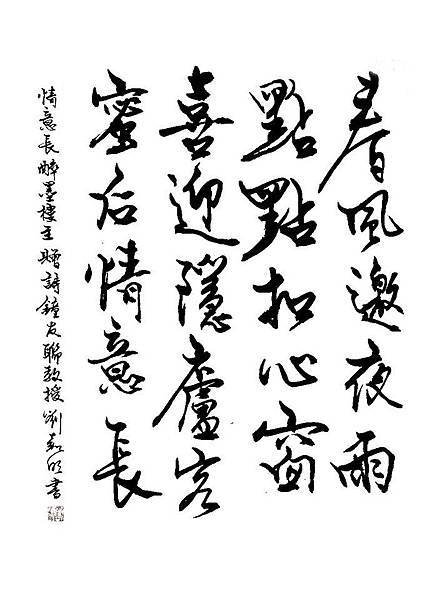 春風邀夜雨
點點扣心窗
喜迎隱廬客
蜜后情意長
情意長 醉墨樓主贈詩鐘友聯教授 劉嘉明書